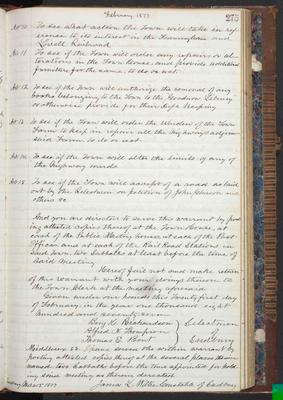 February 1877
275
Art 10. To see what action the Town will take in ref-
erence to its interest in the Framingham and
Lowell Railroad.
Art 11. To see if the Town will order any repairs or al-
terations in the Town House and provide additional
furniture for the same, to do or act.
Art 12. To see if the Town will authorize the removal of any
books belonging to the Town to the Goodnow Library
or otherwise provide for their safe keeping
Art 13. To see if the Town will order the Warden of the Town
Farm to keep in repair all the Highways adjoining
said Farm to do or act.
Art 14. To see if the Town will alter the limits of any of
the Highway wards.
Art 15. To see if the Town will accept of a road as laid
out by the Selectmen on petition of John Johnson and
others &c.
And you are directed to serve this warrant by post-
ing attested copies thereof at the Town House, at
each of the Public Meeting houses at each of the Post
Offices and at each of the Rail Road Stations in
said Town, two Sabbaths at least before the time of
said Meeting
Hereof fail not and make return
of this warrant with your doings thereon to
the Town Clerk at the meeting aforesaid
Given under our hands this Twenty first day
of February in the year one thousand eight
hundred and seventy seven
Benj H. Richardson
Alfred N. Thompson
Thomas E. Bent
Selectmen
of
Sudbury
Middlesex SS. I have served the within warrant by
posting attested copies thereof at the several places therein
named two Sabbaths before the time appointed for hold-
ing said meeting as therein directed
Sudbury March 5 1877. James L. Willis Constable of Sudbury